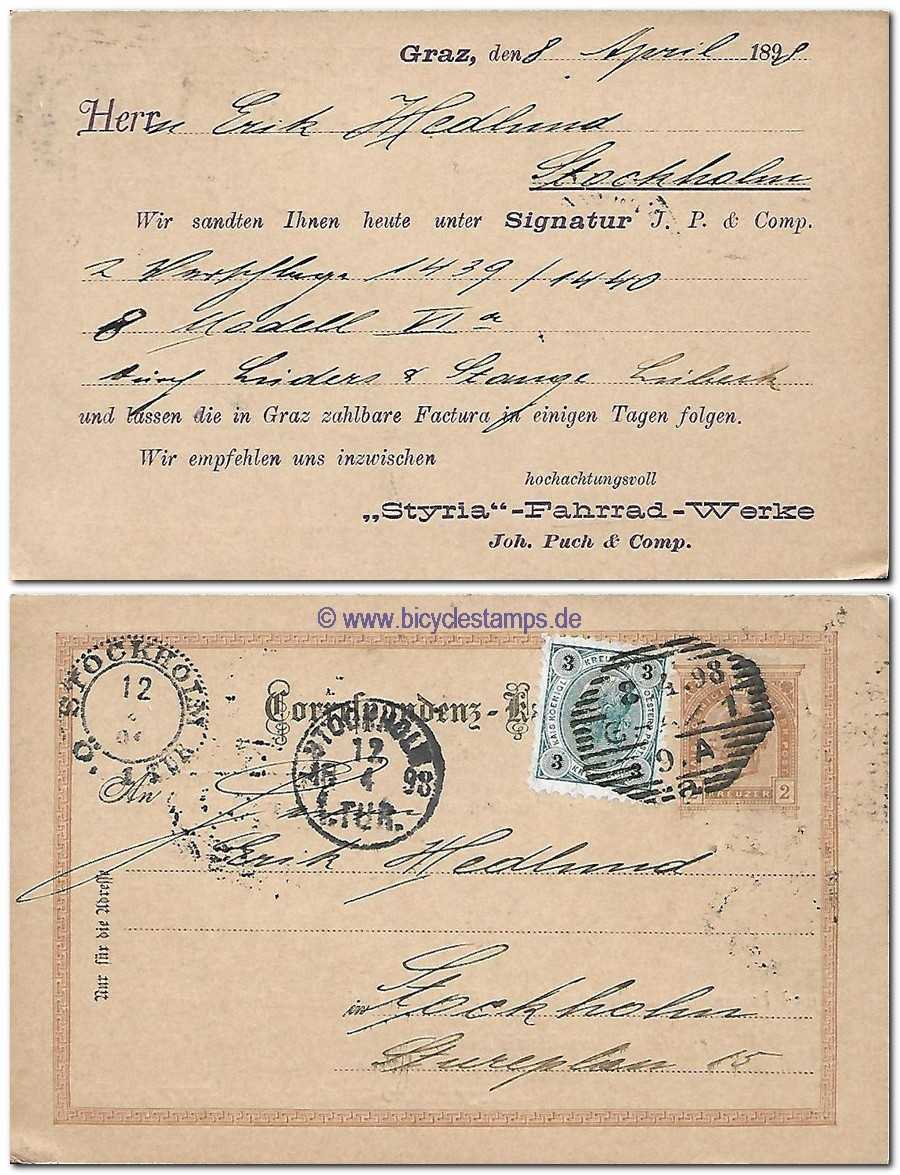 Graz, den 8 April 1898
Herrn Erik Hedlund
Stockholm
Wir sandten Ihnen heute unter Signatur J. P. & Comp.
2 Verschläge 1439/1440
8 Modell VIa
durch Lüders & Stange Lübeck
und lassen die in Graz zahlbare Factura in einigen Tagen folgen.
Wir empfehlen uns inzwischen
hochachtungsvoll
„Styria“-Fahrrad-Werke
Joh. Puch & Comp.
© www.bicyclestamps.de
STOCKHOLM
12
1.TUR.
Correspondenz-K
3 KREUZ 3
KAIS KOENIGL OESTERR
3 3
8 4.98
9 A
KREUZER 2
STOCKHOLM
12
4 98
1.TUR.
An
Erik Hedlund
in Stockholm
Stureplan 15
Nur für die Adresse